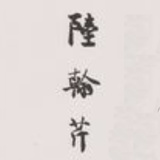 陸翰芹